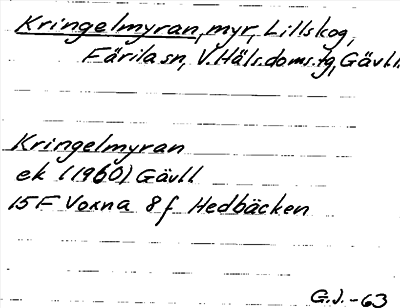 Kringelmyran, myr, Lillskog,
Färila sn, V.Häls.doms.tg, Gävll.
Kringelmyran
ek (1960) Gävll
15F Voxna 8f Hedbäcken
G.J.-63